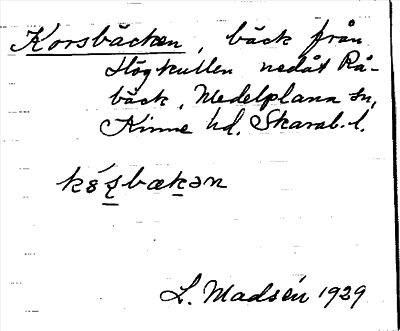 Korsbäcken, bäck från
Högkullen nedåt Rå-
bäck, Medelplana sn,
Kinne hd. Skarab. l.
L. Madsén 1929